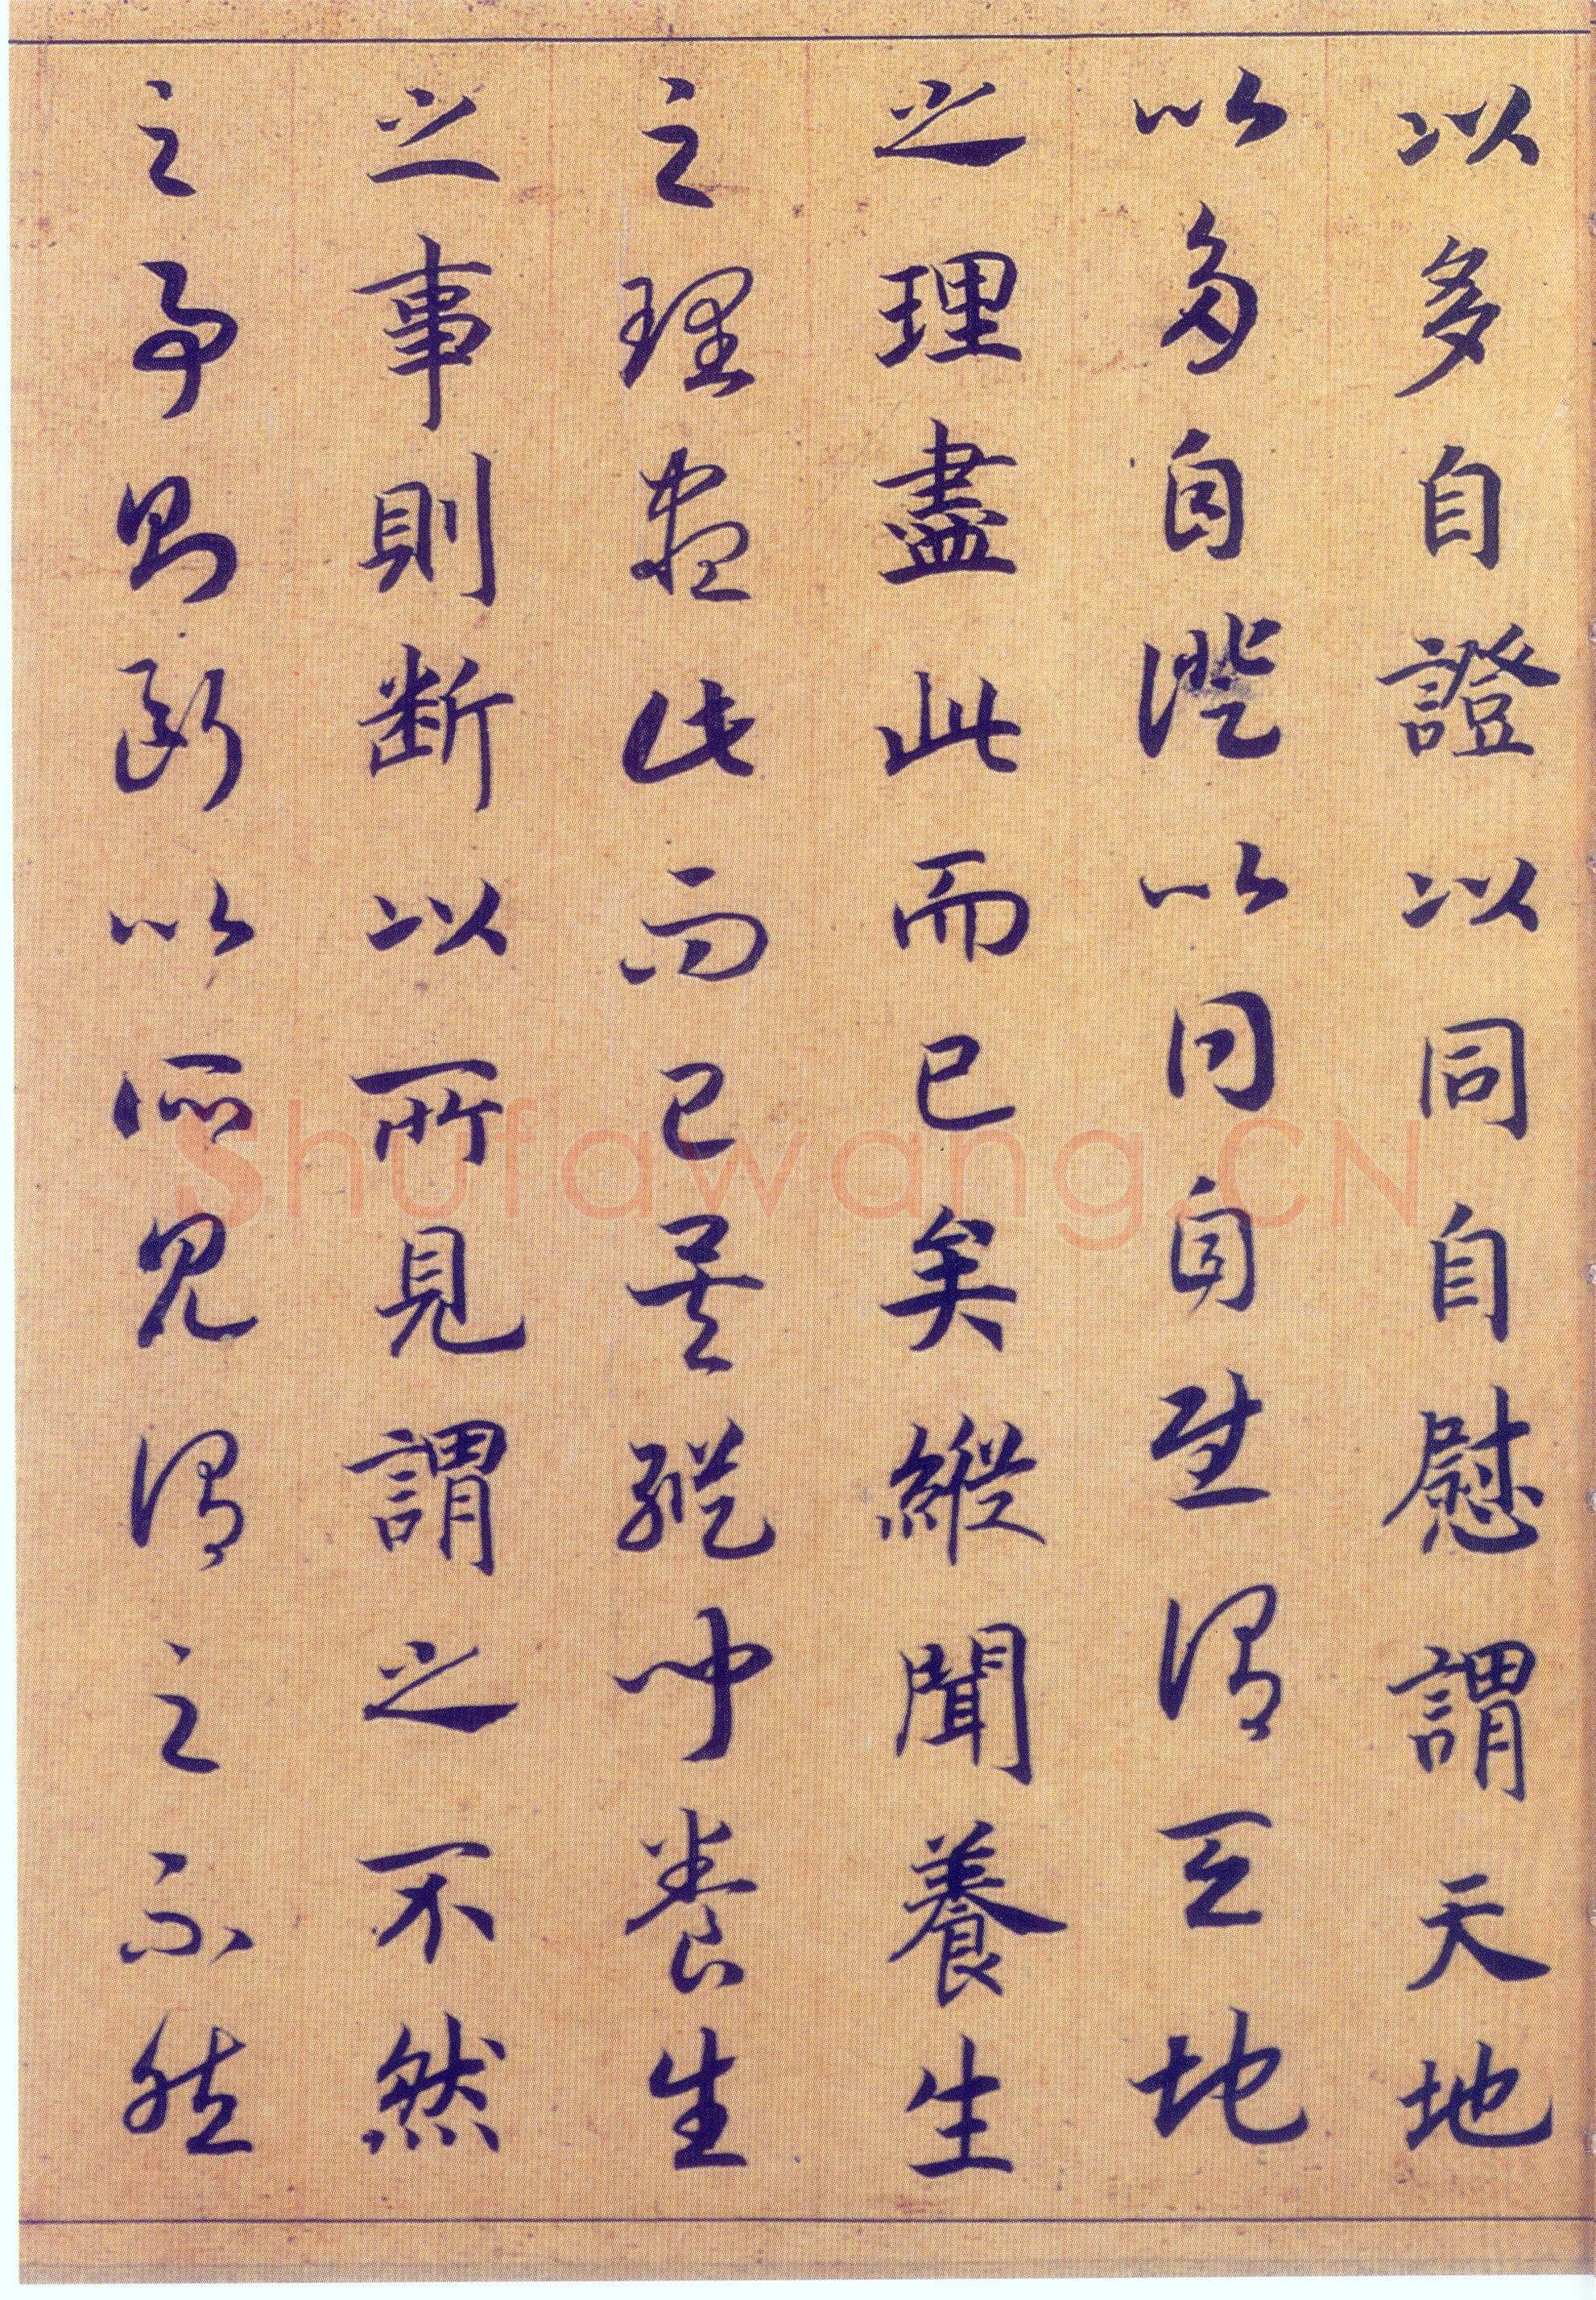 以多自證以同自慰謂天地
以多自證以同自慰謂天地
之理盡此而已矣縱聞養生
之理盡此而已矣縱聞養生
之事則斷以所見謂之不然
之事則斷以所見謂之不然
Shufawang.CN